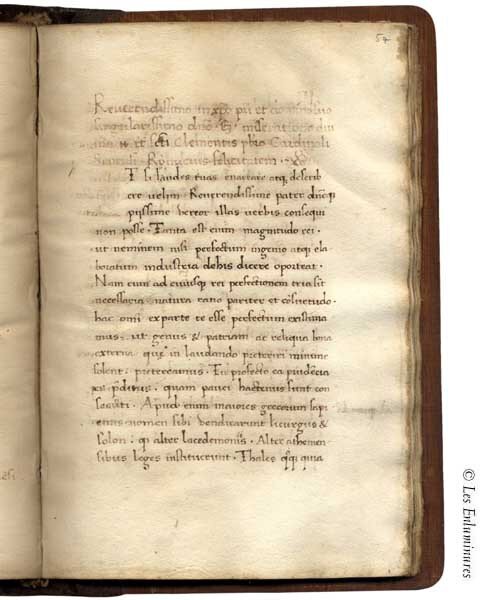 54
Reverendissimo in xpo pri et dno
singularissimo dno . G . miseratione diui
na tt sti Clementis pbro Cardinali
felicitatem
T si laudes tuas enarrare atq describ
ere uelim Reuerendissime pater dne q
piissime uereor illas uerbis consequi
non posse . Tanta est enim magnitudo rei .
ut neminem nisi perfectum ingenio atq ela
boratum industria de his dicere oporteat .
Nam cum ad cuiusq rei perfectionem tria sit
necessaria natura ratio pariter et cosuetudo .
hac omi ex parte te esse perfectum existima
mus . ut genus & patriam ac reliqua bona
externa que in laudando preteriri minime
solent . pretereamus . Tu profecto ea prudecia
es preditus . quam pauci hactenus sunt con
secuti . Apud enim maiores grecorum sapi
entis nomen sibi uendicarunt licurgus &
solon . q alter lacedemoniis . Alter athenien
sibus leges instituerunt . Thales quia
© Les Enluminures